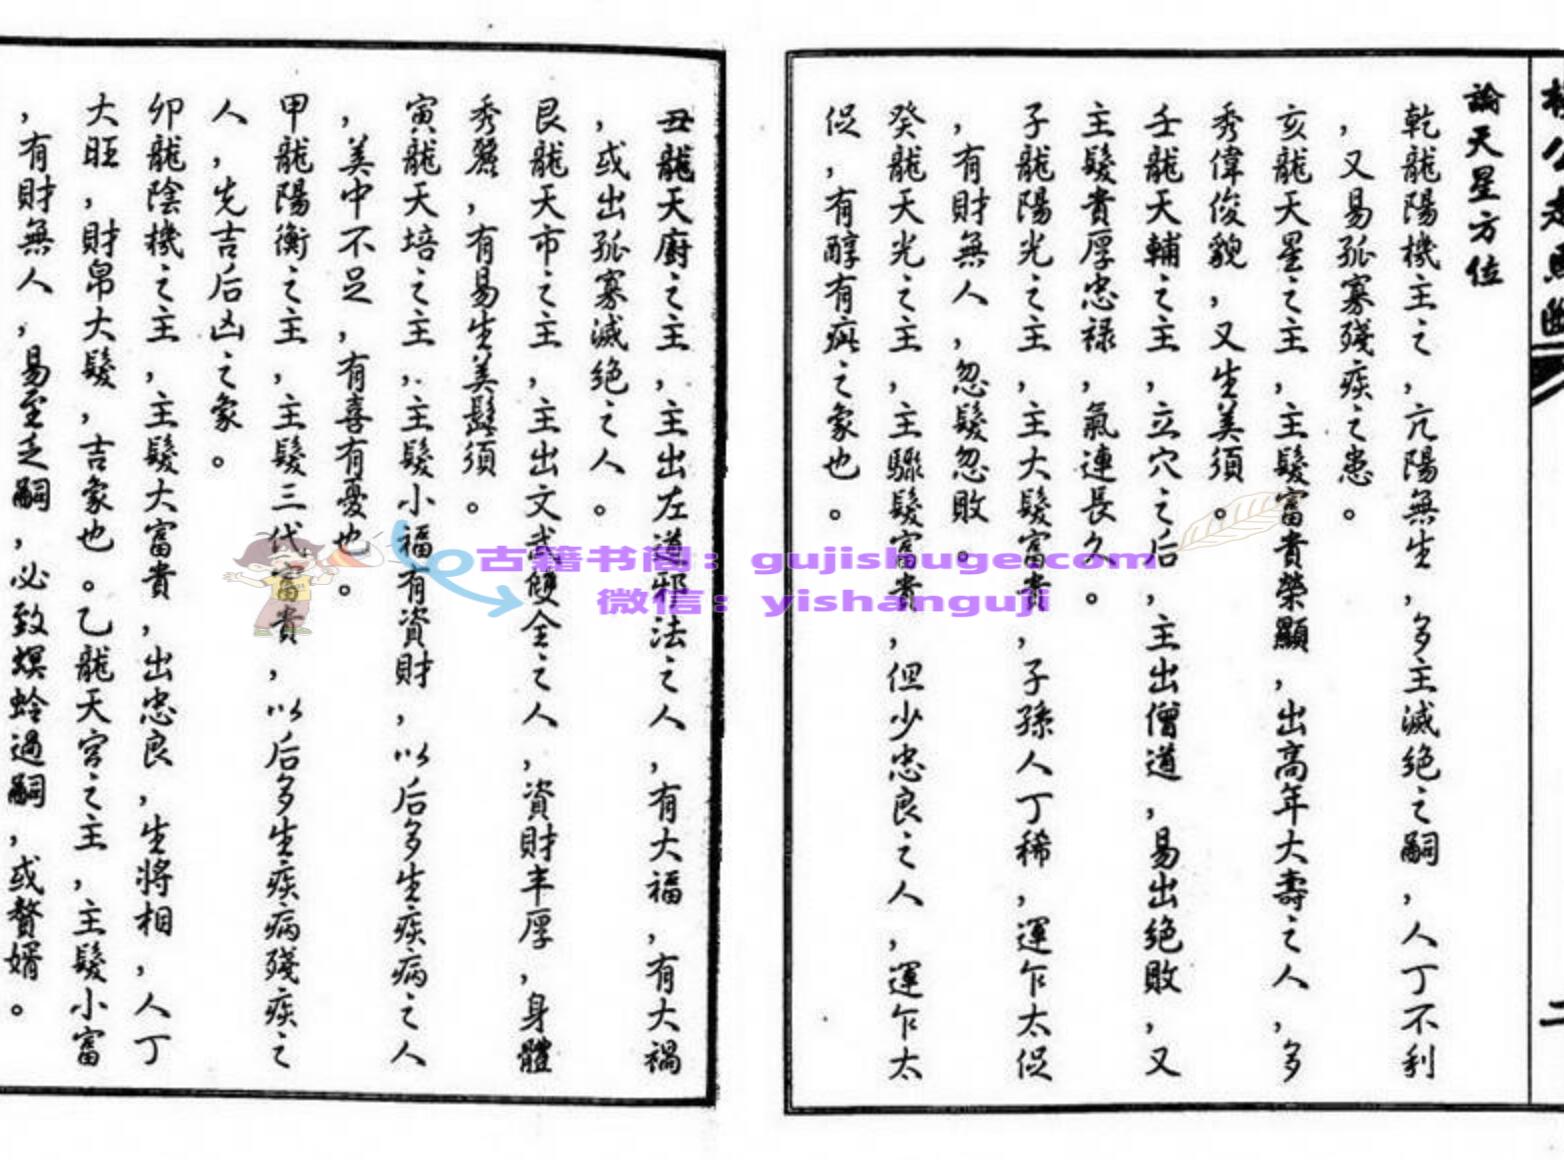 論天星方位
乾龍陽機主之,亢陽無生,多主滅絕之嗣,人丁不利
,又易孤寡殘疾之患。
亥龍天星之主,主髮富貴榮顯,出高年大壽之人,多
秀偉俊貌,又生美須。
壬龍天輔之主,立穴之后,主出僧道,易出絕敗,又
主髮貴厚忠祿,氣連長久。
子龍陽光之主,主大髮富貴,子孫人丁稀,運乍太促
,有財無人,忽髮忽敗。
癸龍天光之主,主驟髮富貴,但少忠良之人,運乍太
促,有醇有疵之象也。
丑龍天廚之主,主出左道邪法之人,有大福,有大禍
,或出孤寡滅絕之人。
艮龍天市之主,主出文武雙全之人,資財丰厚,身體
秀麗,有易生美髯須。
寅龍天培之主,主髮小福有資財,以后多生疾病之人
,美中不足,有喜有憂也。
甲龍陽衡之主,主髮三代富貴,以后多生疾病殘疾之
人,先吉后凶之象。
卯龍陰機之主,主髮大富貴,出忠良,生將相,人丁
大旺,財帛大髮,吉象也。乙龍天官之主,主髮小富
,有財無人,易至乏嗣,必致螟蛉過嗣,或贅婿。
古籍书阁:gujishuge.com
微信:yishanguji